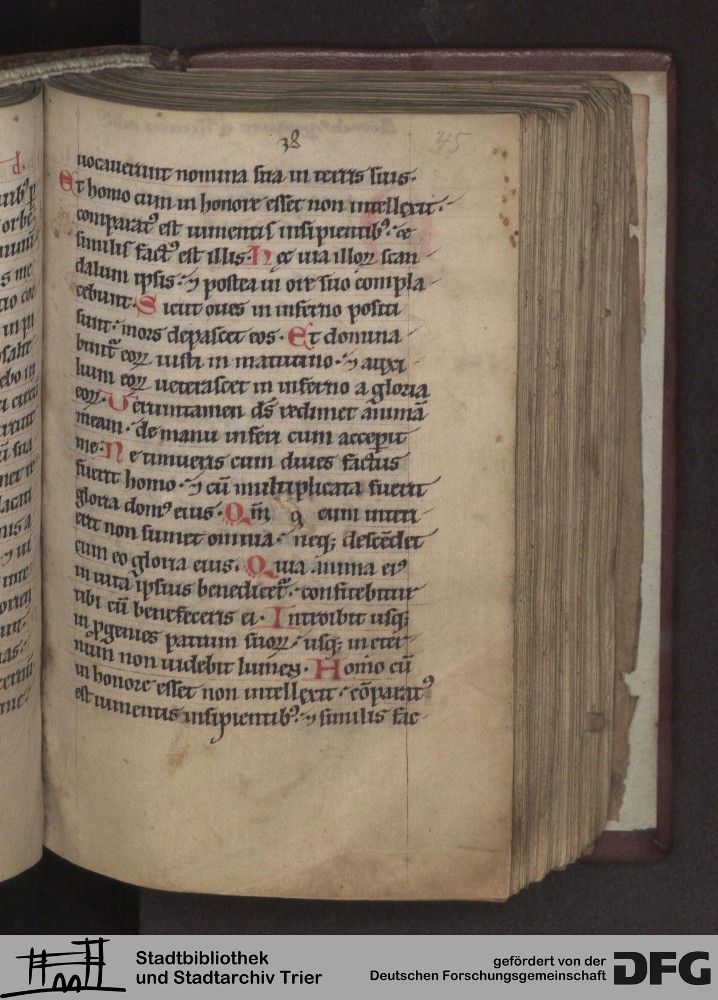 38
45
uocauerunt nomina sua in terris suis·
Et homo cum in honore esset non intellexit·
comparatꝰ est iumentis insipientibꝰ· ⁊
similis factꝰ est illis· Hec uia illoꝝ scan
dalum ipsis· ⁊ postea in ore suo compla
cebunt· Sicut oues in inferno positi
sunt· mors depascet eos· Et domina
bunt᷑ eoꝝ iusti in matutino· ⁊ auxi
lium eoꝝ ueterascet in inferno a gloria
eoꝝ· Veruntamen ds̄ redimet animā
meam· de manu inferi cum acceperit
me· Ne timueris cum diues factus
fuerit homo· ⁊ cū multiplicata fuerit
gloria domꝰ eius· Qm̄ cum interi
erit non sumet omnia· neqꝫ descēdet
cum eo gloria eius· Quia anima eiꝰ
in uita ipsius benedicet᷑· confitebitur
tibi cū benefeceris ei· Introibit usqꝫ
in ꝓgenies patrum suoꝝ· usqꝫ in eter
num non uidebit lumen· Homo cū
in honore esset non intellexit· cōparatꝰ
est iumentis insipientibꝰ· ⁊ similis fac
Stadtbibliothek
und Stadtarchiv Trier
gefördert von der
Deutschen Forschungsgemeinschaft
DFG